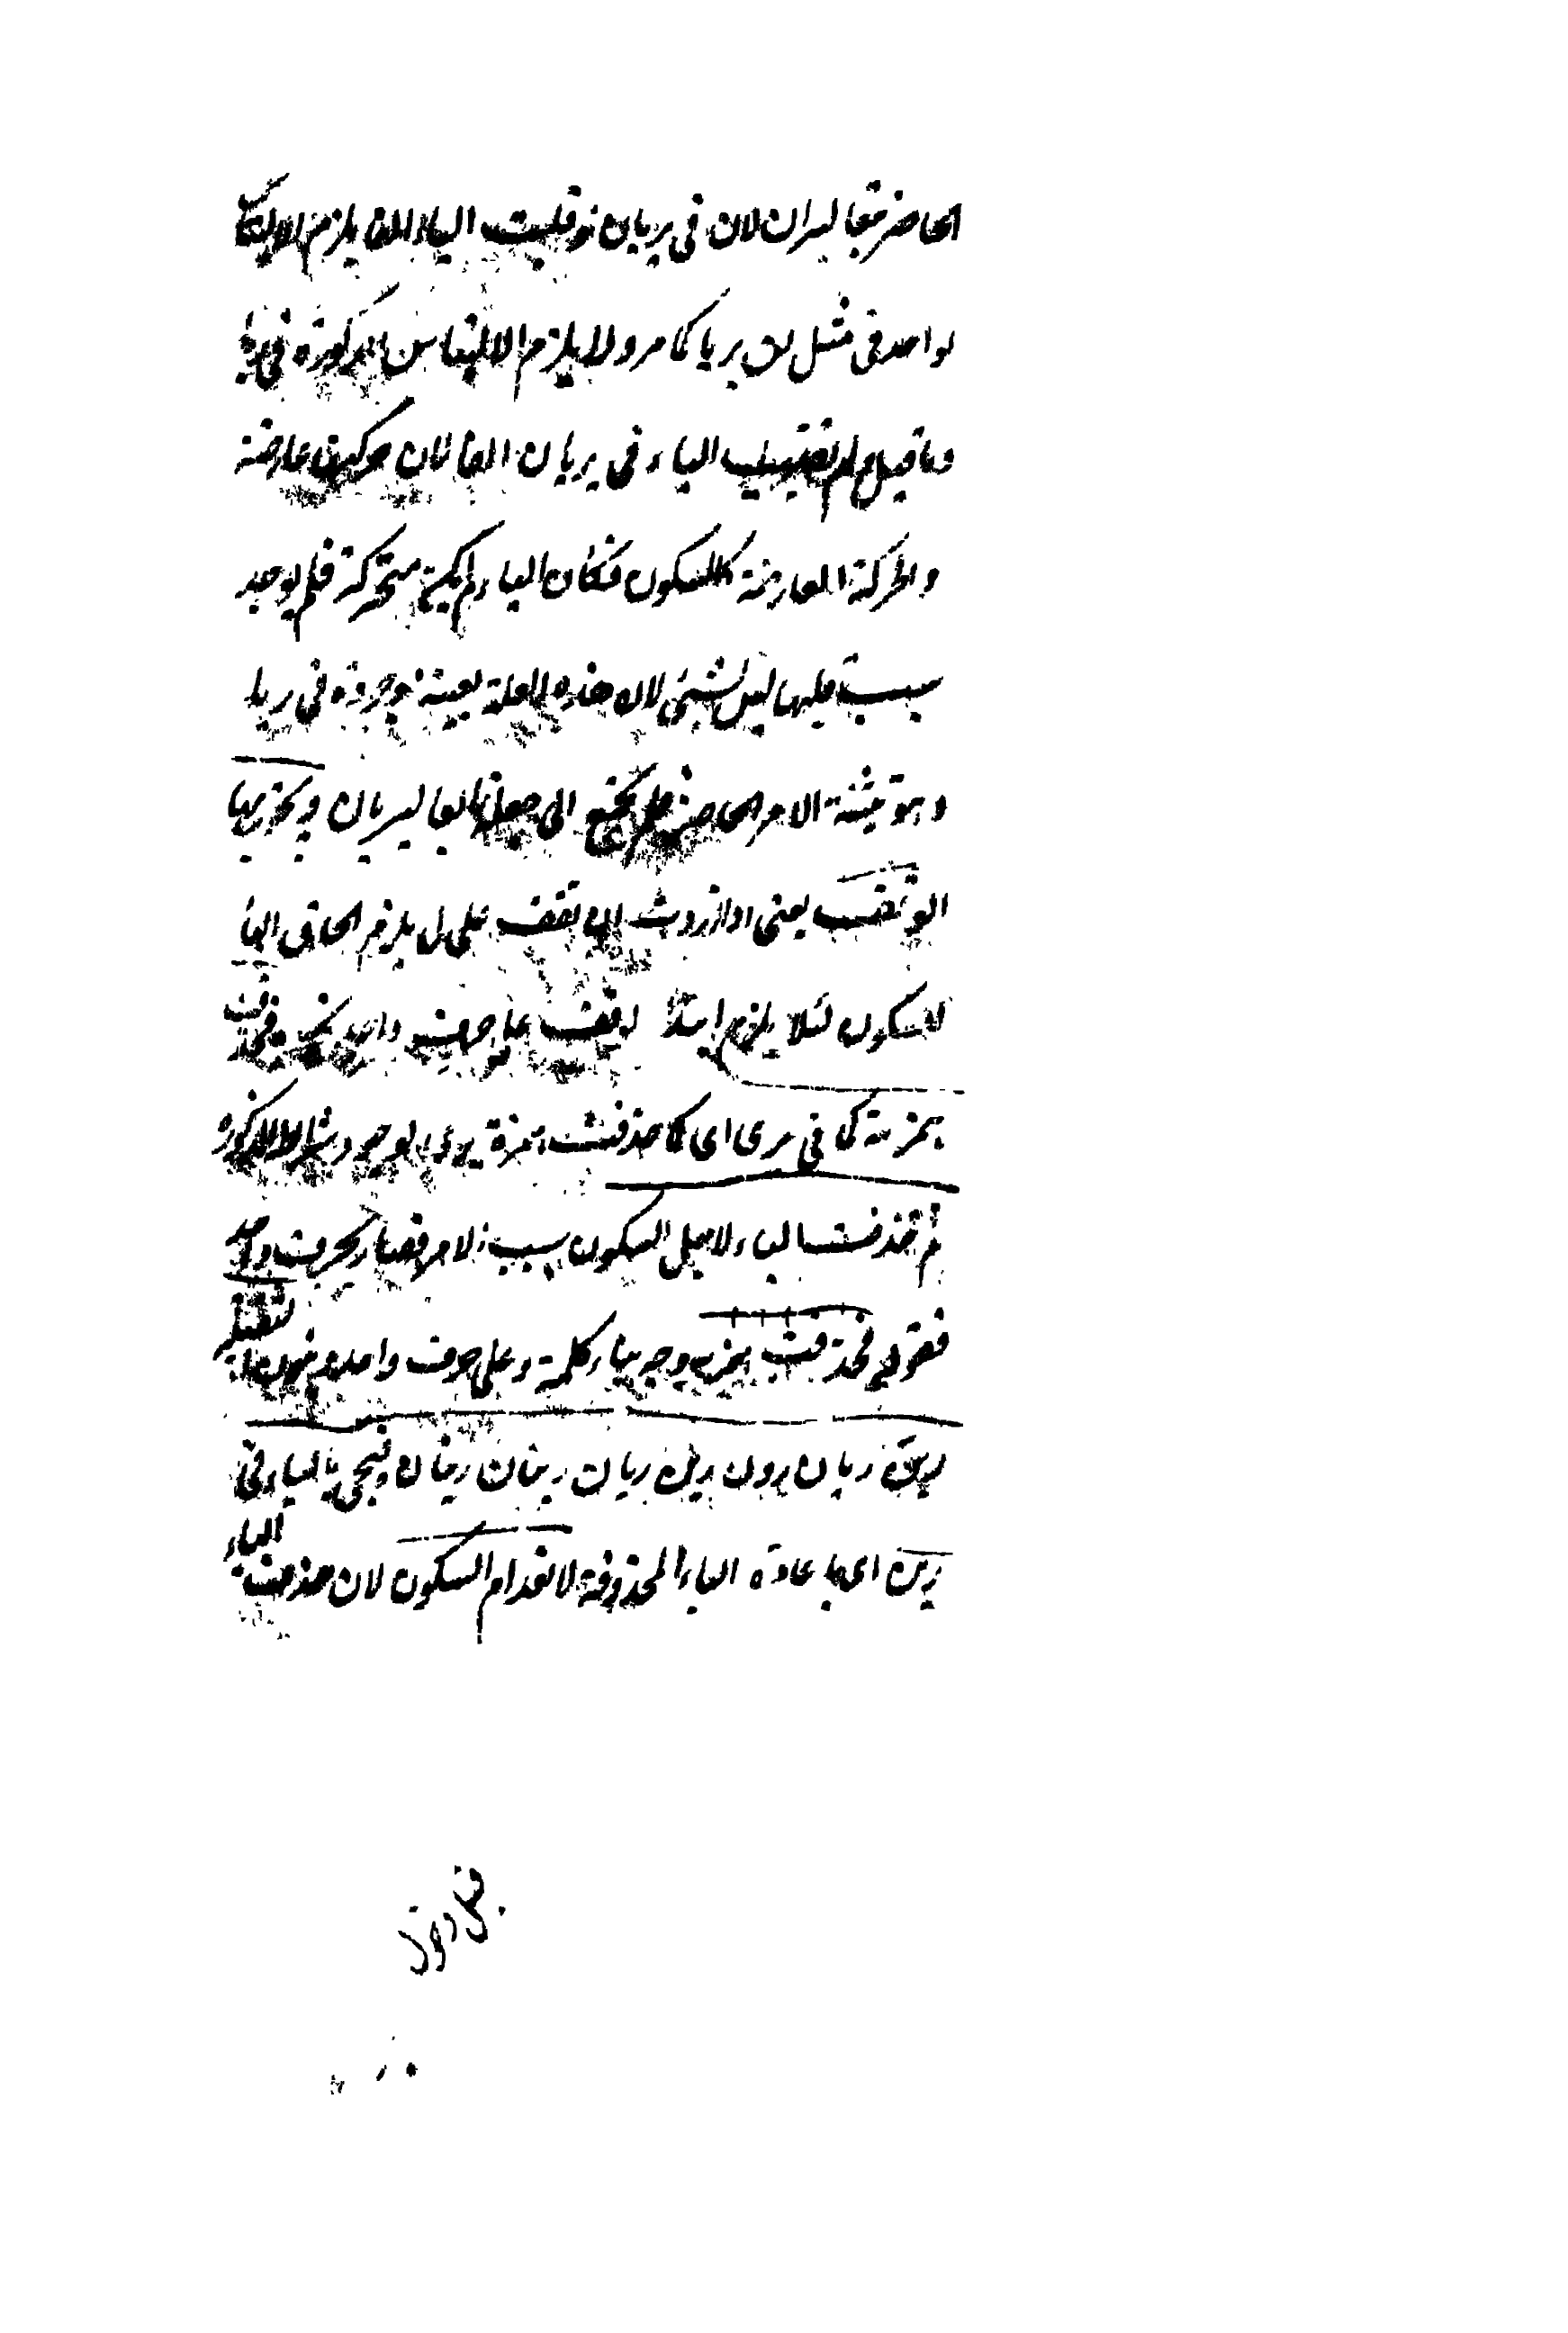 الحاضر تبعا ليران لان في يريان لو قلبت الياء الفا يلزم الالتباس
لواحد في مثل لن يريا كما مر ولا يلزم الالتباس المذكورة في ريا
وما قيل ولم تقلب الياء في يريان الفا لان حركتها عارضة
والحركة العارضة كالسكون فكان الياء لم يكن متحركة فلم يوجد
سبب قلبها ليس بشيئ لان هذه العلة بعينه موجودة في ريا
وهو تثنية الامر الحاضر فلم يحتج الى جعلها تابعا ليريان ويجوز بهاء
الوقف يعنى اذا اردت ان تقف على ل يلزم الحاق الهاء
للسكون لئلا يلزم ابتداء الوقف على حرف واحد فحذفت
همزته كما في يرى اى كما حذفت همزة يرى لوجود شرائط المذكورة
ثم حذفت الياء لاجل السكون بسبب الامر فصار بحرف واحد
فقوله فحذفت همزه وجه بناء كلمة على حرف واحد
ريان رون رين ريان رينان وتجئ بالياء في
رين اى باعادة الياء المحذوفة لانعدام السكون لان حذفت الياء